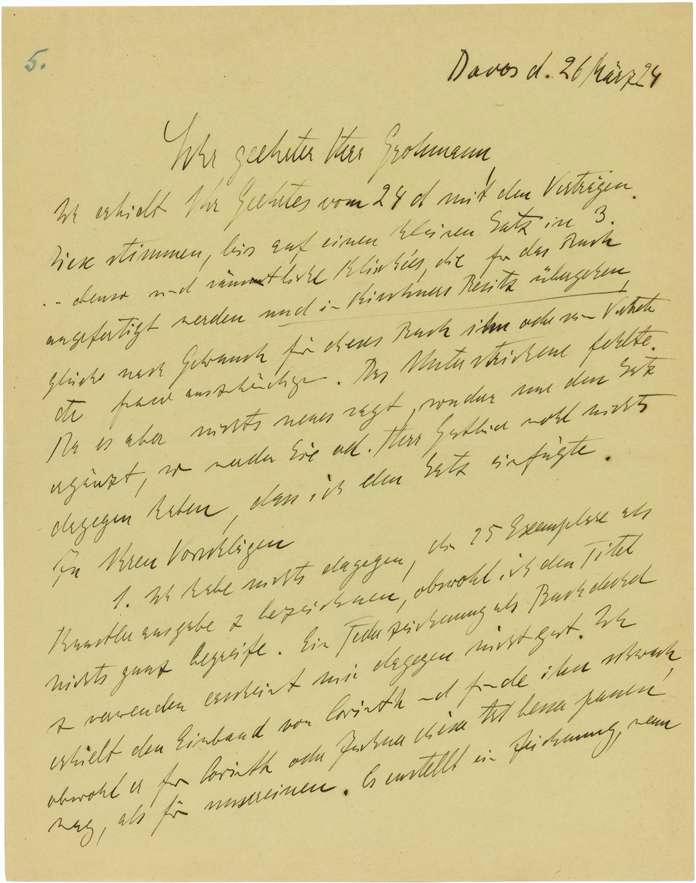 5.
Davos d. 26 März 24
Sehr geehrter Herr Grohmann
Ich erhielt Ihr Geehrtes vom 24 d mit den Verträgen.
Diese stimmen, bis auf einen kleinen Satz in 3.
.. ebenso sind sämmtliche Klischées, die für das Buch
angefertigt werden und in Kirchners Besitz übergehen
nach Gebrauch für dieses Buch ihm oder
franco auszuhändigen. Das Unterstrichene fehlte.
Da es aber nichts neues sagt, sondern nur den Satz
ergänzt, so werden Sie od. Herr Gottlieb wohl nichts
dagegen haben, dass ich den Satz einfügte.
Zu Ihren Vorschlägen
1. Ich habe nichts dagegen, die 25 Exemplare als
Künstlerausgabe z bezeichnen, obwohl ich den Titel
nicht ganz begreife. Ein Federzeichnung als Buchdeckel
z verwenden erscheint mir dagegen nicht gut. Ich
erhielt den Einband von Corinth und finde ihn schwach,
obwohl er für Corinth oder diese Art besser passen
mag, als für unsereinen. Es entstellt ein Zeichnung, wenn